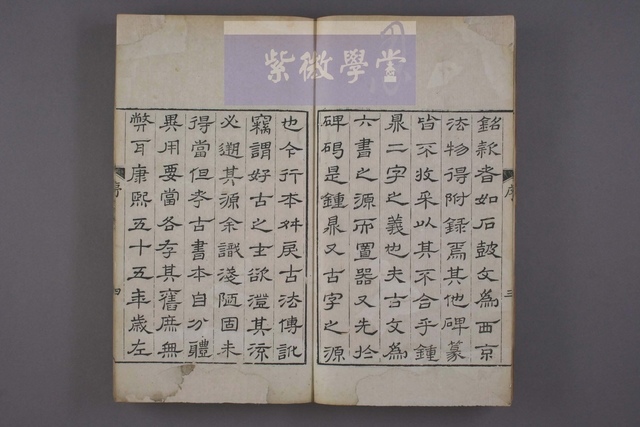 紫微學堂
銘款者如石鼓文為西京
法物得附錄焉其他碑篆
皆不收采以其不合乎鍾
鼎二字之義也夫古文為
六書之源而置器又先於
碑碣是鍾鼎又古字之源
序
三
也今行本舛戾古法傳訛
竊謂好古之士欲澄其流
必遡其源余識淺陋固未
得當但考古書本自分體
異用要當各存其舊庶無
弊耳康熙五十五年歲左
序
四